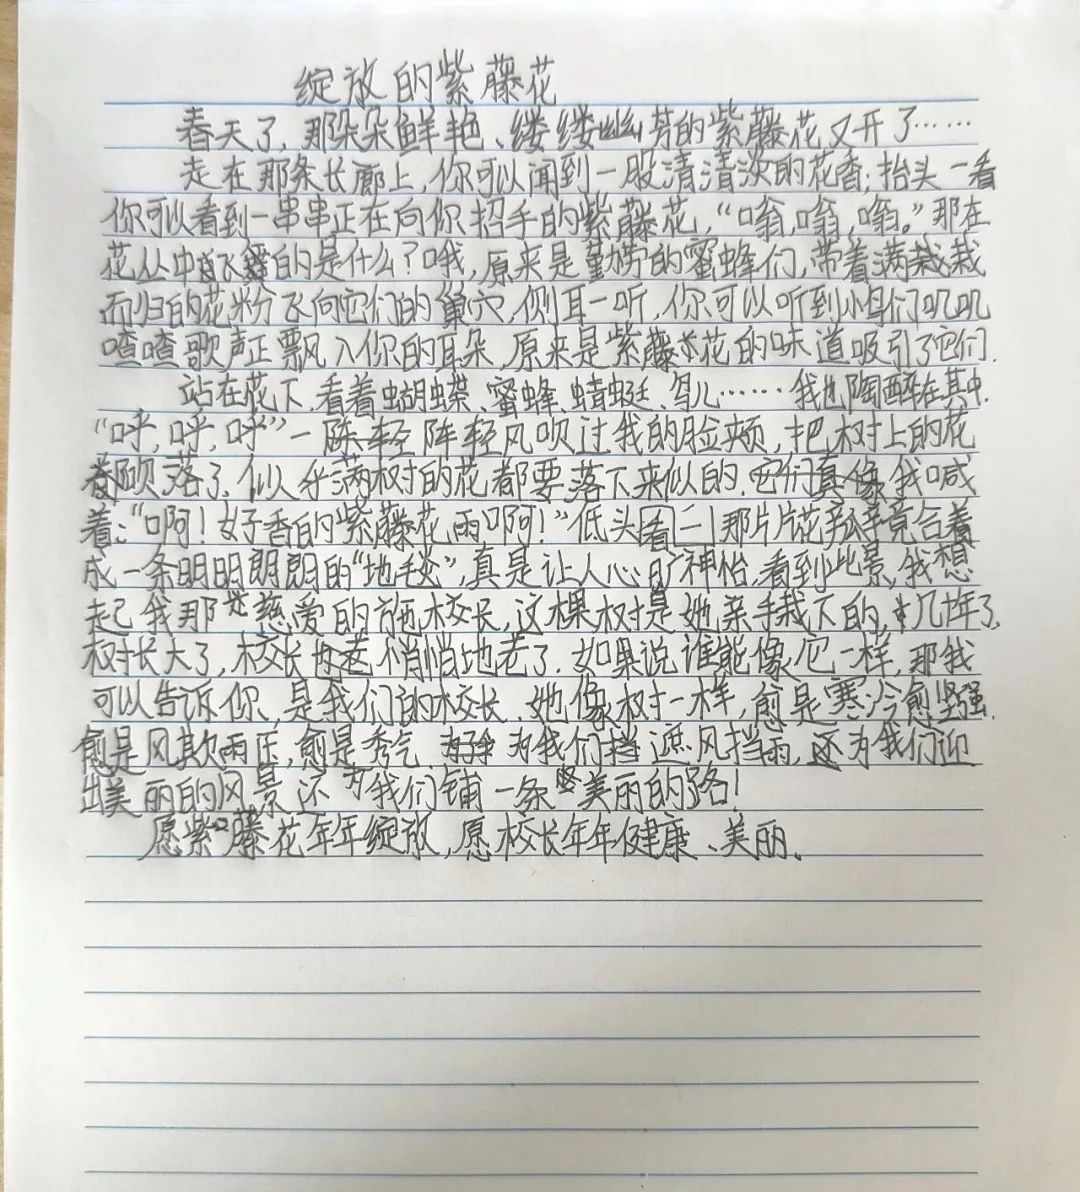 绽放的紫藤花
春天了，那朵朵鲜艳、缕缕幽芳的紫藤花又开了……
走在那条长廊上，你可以闻到一股清清淡的花香；抬头一看
你可以看到一串串正在向你招手的紫藤花，“嗡，嗡，嗡。”那在
花丛中飞舞的是什么？哦，原来是勤劳的蜜蜂们，带着满栽栽
而归的花粉飞向它们的巢穴，侧耳一听，你可以听到小鸟们叽叽
喳喳歌声正飘入你的耳朵，原来是紫藤花的味道吸引了它们.
站在花下，看着蝴蝶、蜜蜂、蜻蜓、鸟儿……我也陶醉在其中.
“呼，呼，呼”一阵轻阵轻风吹过我的脸颊，把树上的花
都吹落了，似乎满树的花都要落下来似的.它们真像我喊
着：“啊！好香的紫藤花雨啊！”低头看二那片片花瓣竟合着
成一条明明朗朗的“地毯”，真是让人心旷神怡，看到此景，我想
起我那位慈爱的施校长，这棵树是她亲手栽下的，几十年了，
树长大了，校长也悄悄地老了.如果说谁能像它一样，那我
可以告诉你，是我们的校长、她像树一样，愈是寒冷愈坚强，
愈是风欺雨压，愈是秀气 为我们遮风挡雨，还为我们迎
出美丽的风景还为我们铺一条美丽的路！
愿紫藤花年年绽放，愿校长年年健康、美丽、